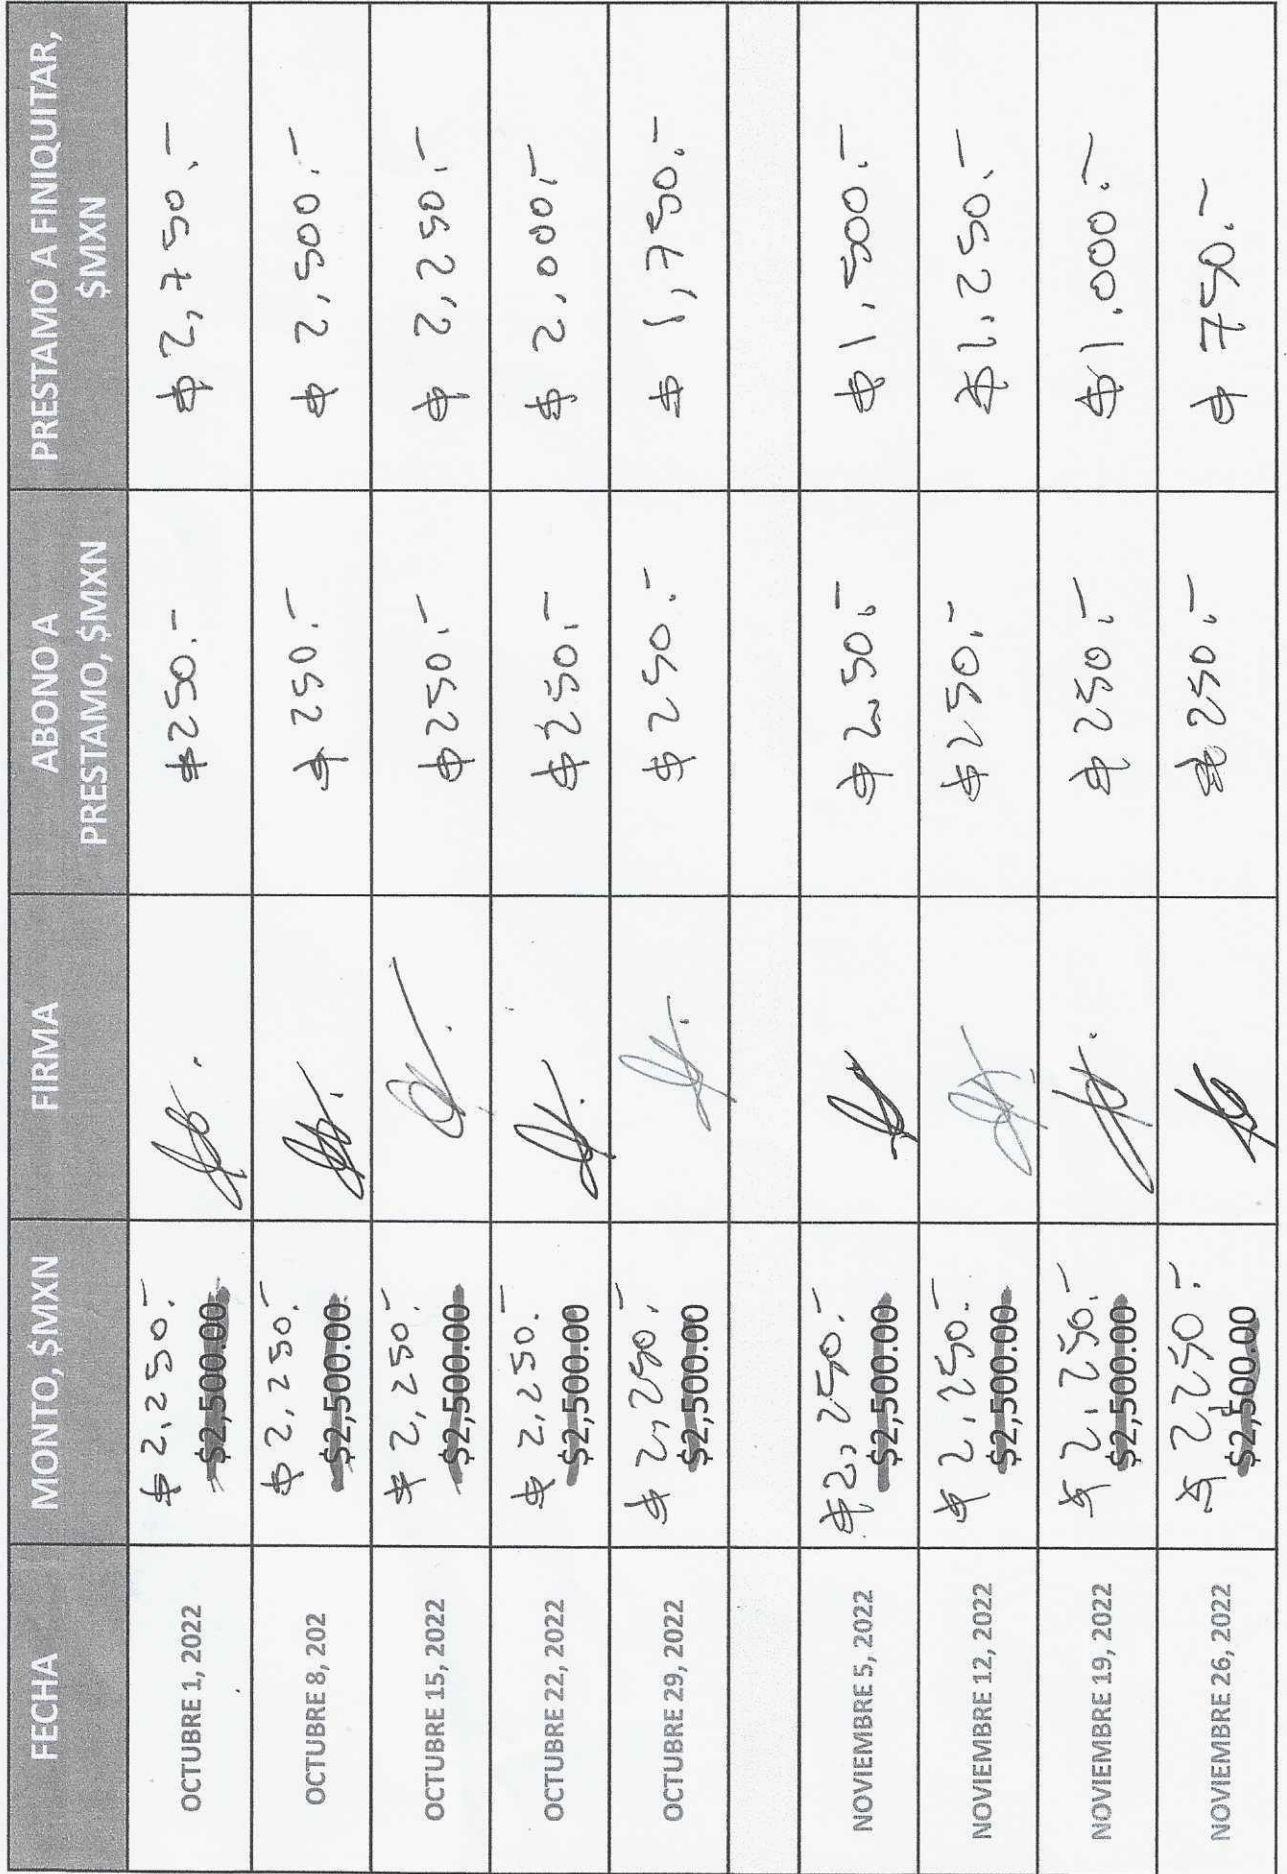 FECHA MONTO, $MXN FIRMA ABONO A PRESTAMO, $MXN PRESTAMO A FINIQUITAR, $MXN
OCTUBRE 1, 2022 $2,250.- $2,500.00 $250.- $2,750.-
OCTUBRE 8, 202 $2,250.- $2,500.00 $250.- $2,500.-
OCTUBRE 15, 2022 $2,250.- $2,500.00 $250.- $2,250.-
OCTUBRE 22, 2022 $2,250.- $2,500.00 $250.- $2,000.-
OCTUBRE 29, 2022 $2,250.- $2,500.00 $250.- $1,750.-
NOVIEMBRE 5, 2022 $2,250.- $2,500.00 $250.- $1,500.-
NOVIEMBRE 12, 2022 $2,250.- $2,500.00 $250.- $1,250.-
NOVIEMBRE 19, 2022 $2,250.- $2,500.00 $250.- $1,000.-
NOVIEMBRE 26, 2022 $2,250.- $2,500.00 $250.- $750.-